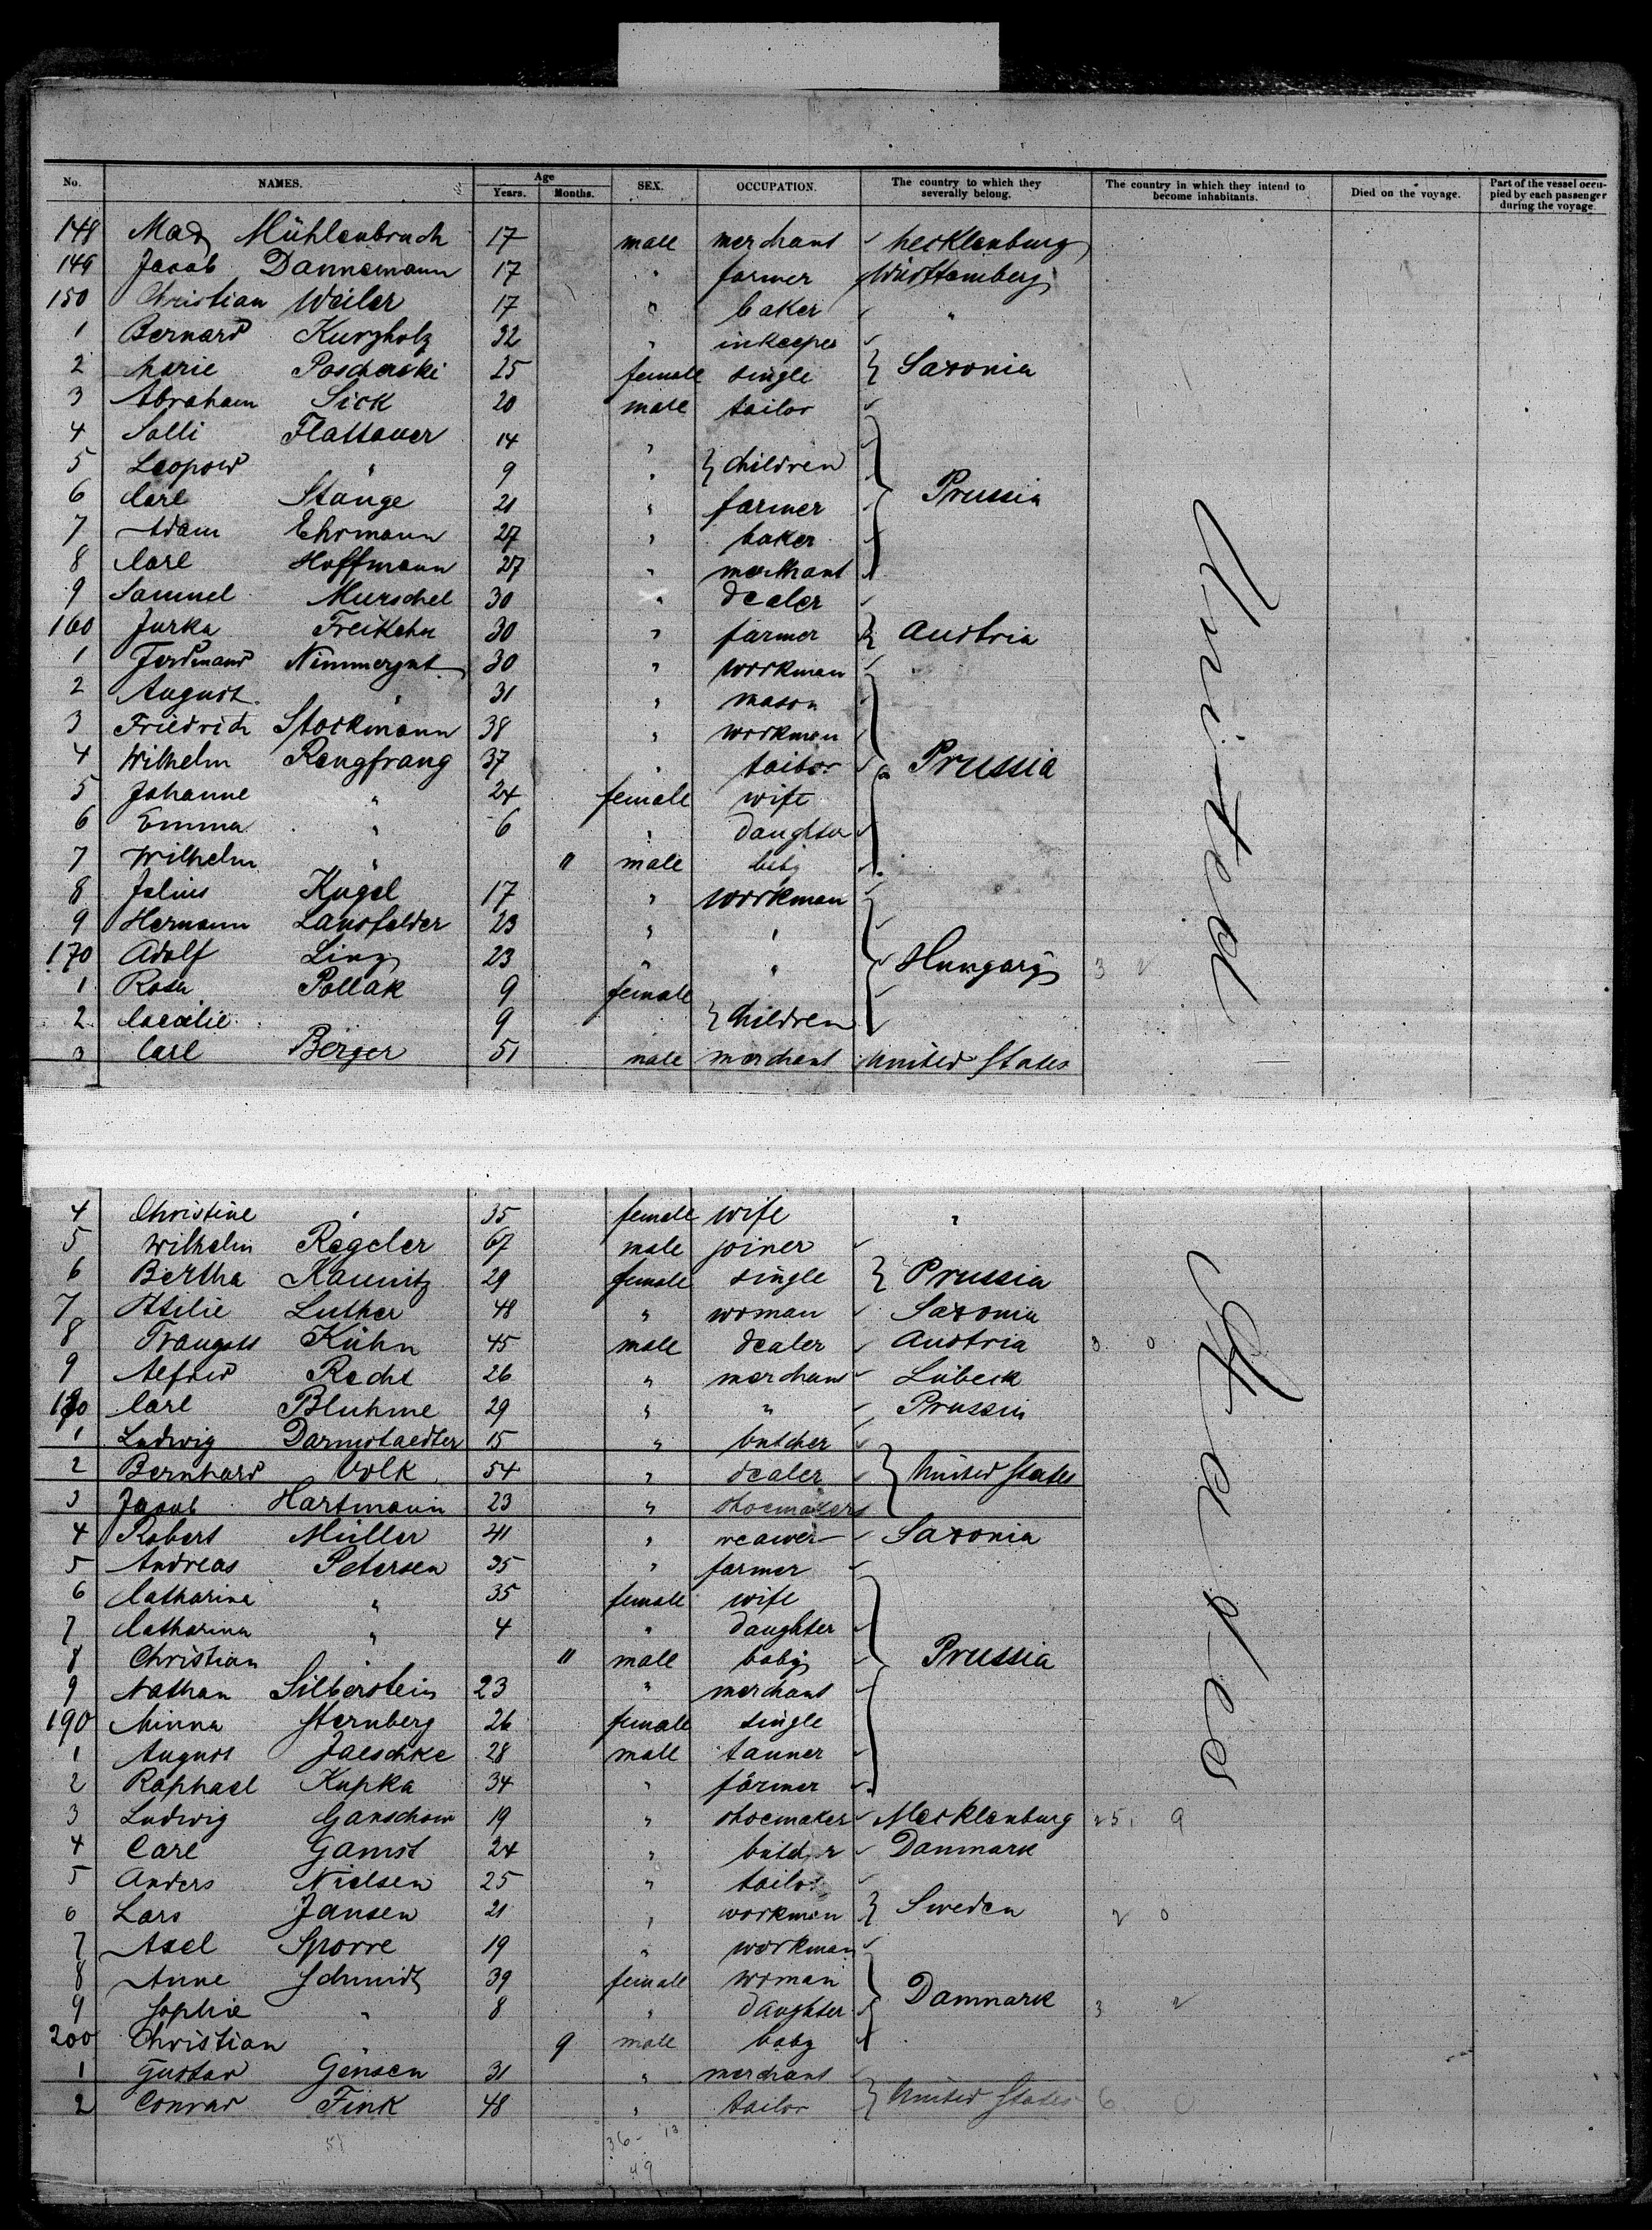 No. NAMES. Age Years. Months. SEX. OCCUPATION. The country to which they severally belong. The country in which they intend to become inhabitants. Died on the voyage. Part of the vessel occupied by each passenger during the voyage.
148 Max Mühlenbruch 17 male merchant Mecklenburg
149 Jacob Dannemann 17 " farmer Württemberg
150 Christian Weiler 17 " baker "
1 Bernard Kurzholz 32 " inkeeper
2 Marie 25 female single } Saxonia
3 Abraham Sick 20 male tailor
4 Salli Flattauer 14 "
5 Leopold " 9 " } children
6 Carl Stange 21 " farmer Prussia
7 Adam Ehrmann 27 " baker
8 Carl Hoffmann 27 " merchant
9 Samuel Murschel 30 " dealer
160 Jurka Freikehn 30 " farmer } Austria
1 Ferdinand Nimmergut 30 " workman
2 August " 31 " mason
3 Friedrich Stockmann 38 " workman
4 Wilhelm Rengfrang 37 " tailor Prussia
5 Johanne " 24 female wife
6 Emma " 6 " daughter
7 Wilhelm " 11 male baby
8 Julius Kugel 17 " workman
9 Hermann Landsfelder 23 " "
170 Adolf Linz 23 " " Hungary 3 2
1 Rosa Pollak 9 female
2 Caecilie 9 } children
3 Carl Berger 51 male merchant United States
United
4 Christine " 35 female wife "
5 Wilhelm Regeler 67 male joiner
6 Bertha Kaunitz 29 female single } Prussia
7 Ottilie Luther 48 " woman Saxonia
8 Traugott Kühn 45 male dealer Austria 3 0
9 Alfred Recht 26 " merchant Lübeck
180 Carl Bluhme 29 " " Prussia
1 Ludwig Darmstaedter 15 " butcher
2 Bernhard Volk 54 " dealer } United States
3 Jacob Hartmann 23 " shoemakers
4 Robert Müller 41 " weawer Saxonia
5 Andreas Petersen 35 " farmer
6 Catharina " 35 female wife
7 Catharina " 4 " daughter
8 Christian " 11 male baby Prussia
9 Nathan Silberstein 23 " merchant
190 Minna Sternberg 26 female single
1 August Jaeschke 28 male tanner
2 Raphael Kupka 34 " farmer
3 Ludwig Ganschow 19 " shoemaker Mecklenburg 25. 9
4 Carl Gamst 24 " builder Danmark
5 Anders Nielsen 25 " tailor
6 Lars Jansen 21 " workman } Sweden 2 0
7 Axel Sporre 19 " workman
8 Anne Schmidt 39 female woman
9 Sophie " 8 " daughter Danmark 3 2
200 Christian 9 male baby
1 Gustav Gensen 31 " merchant
2 Conrad Fink 48 " tailor } United States 6 0
States
58 36 - 13
49